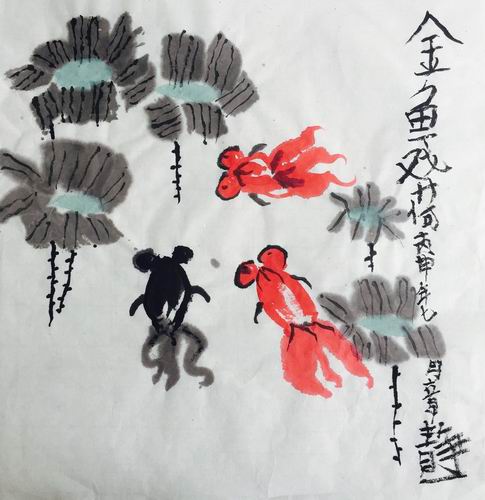 金鱼戏荷丙申年七月章静